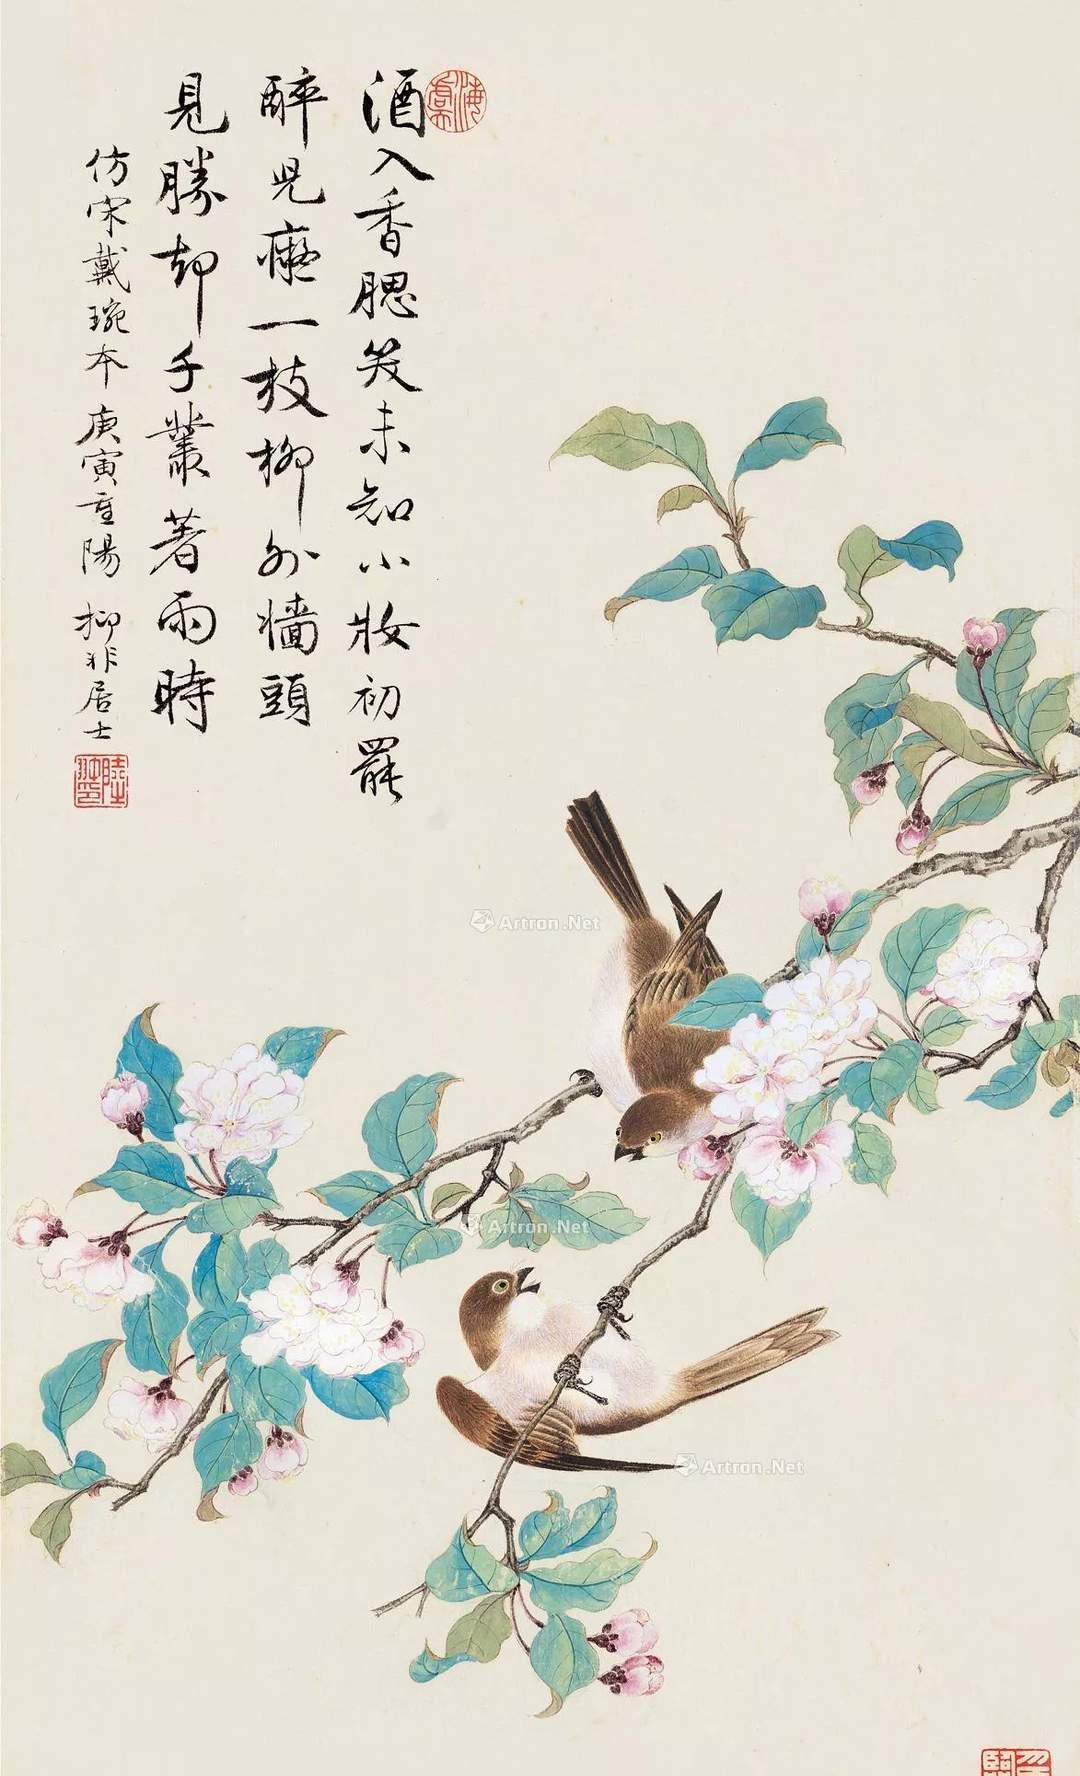 酒入香腮笑未知小妝初罷
醉兒癡一枝柳外牆頭
見勝却千叢著雨時
仿宋戴琬本庚寅重陽抑非居士
Artron.Net
Artron.Net
Artron.Net